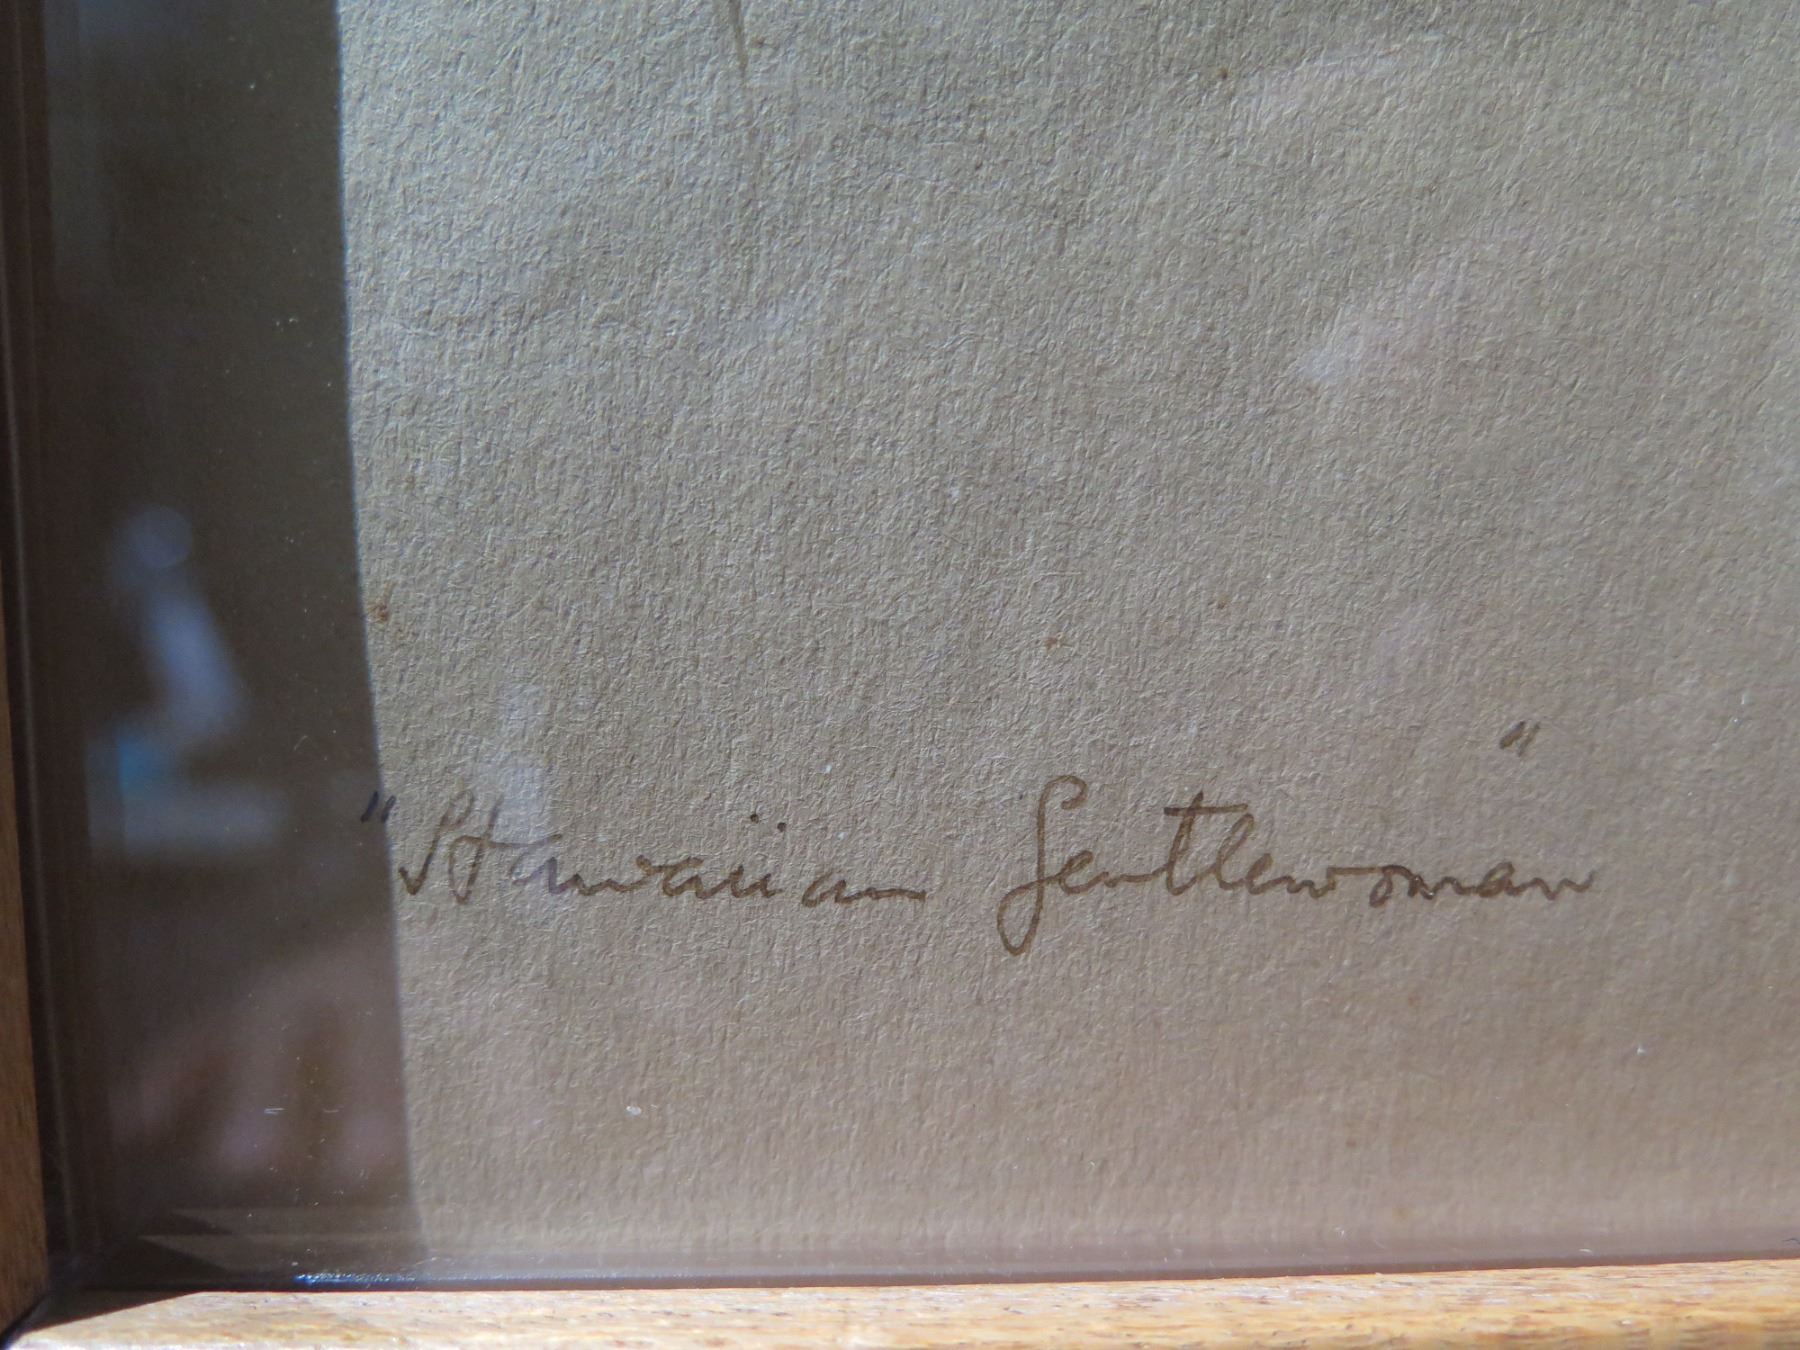 "Hawaiian Gentlewoman"